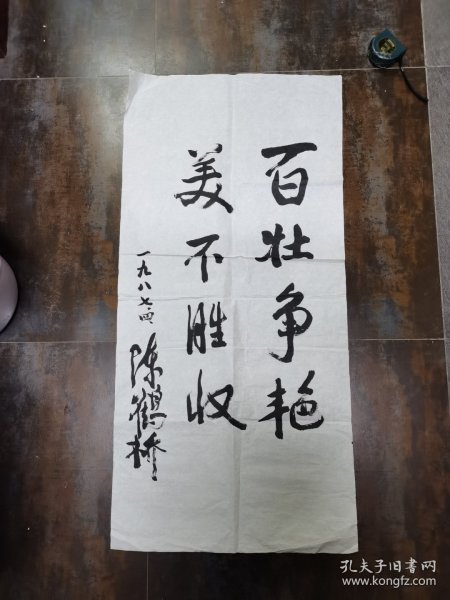 百壮争艳
美不胜收
一九八七.四
陈鹤桥
孔夫子旧书网
www.kongfz.com